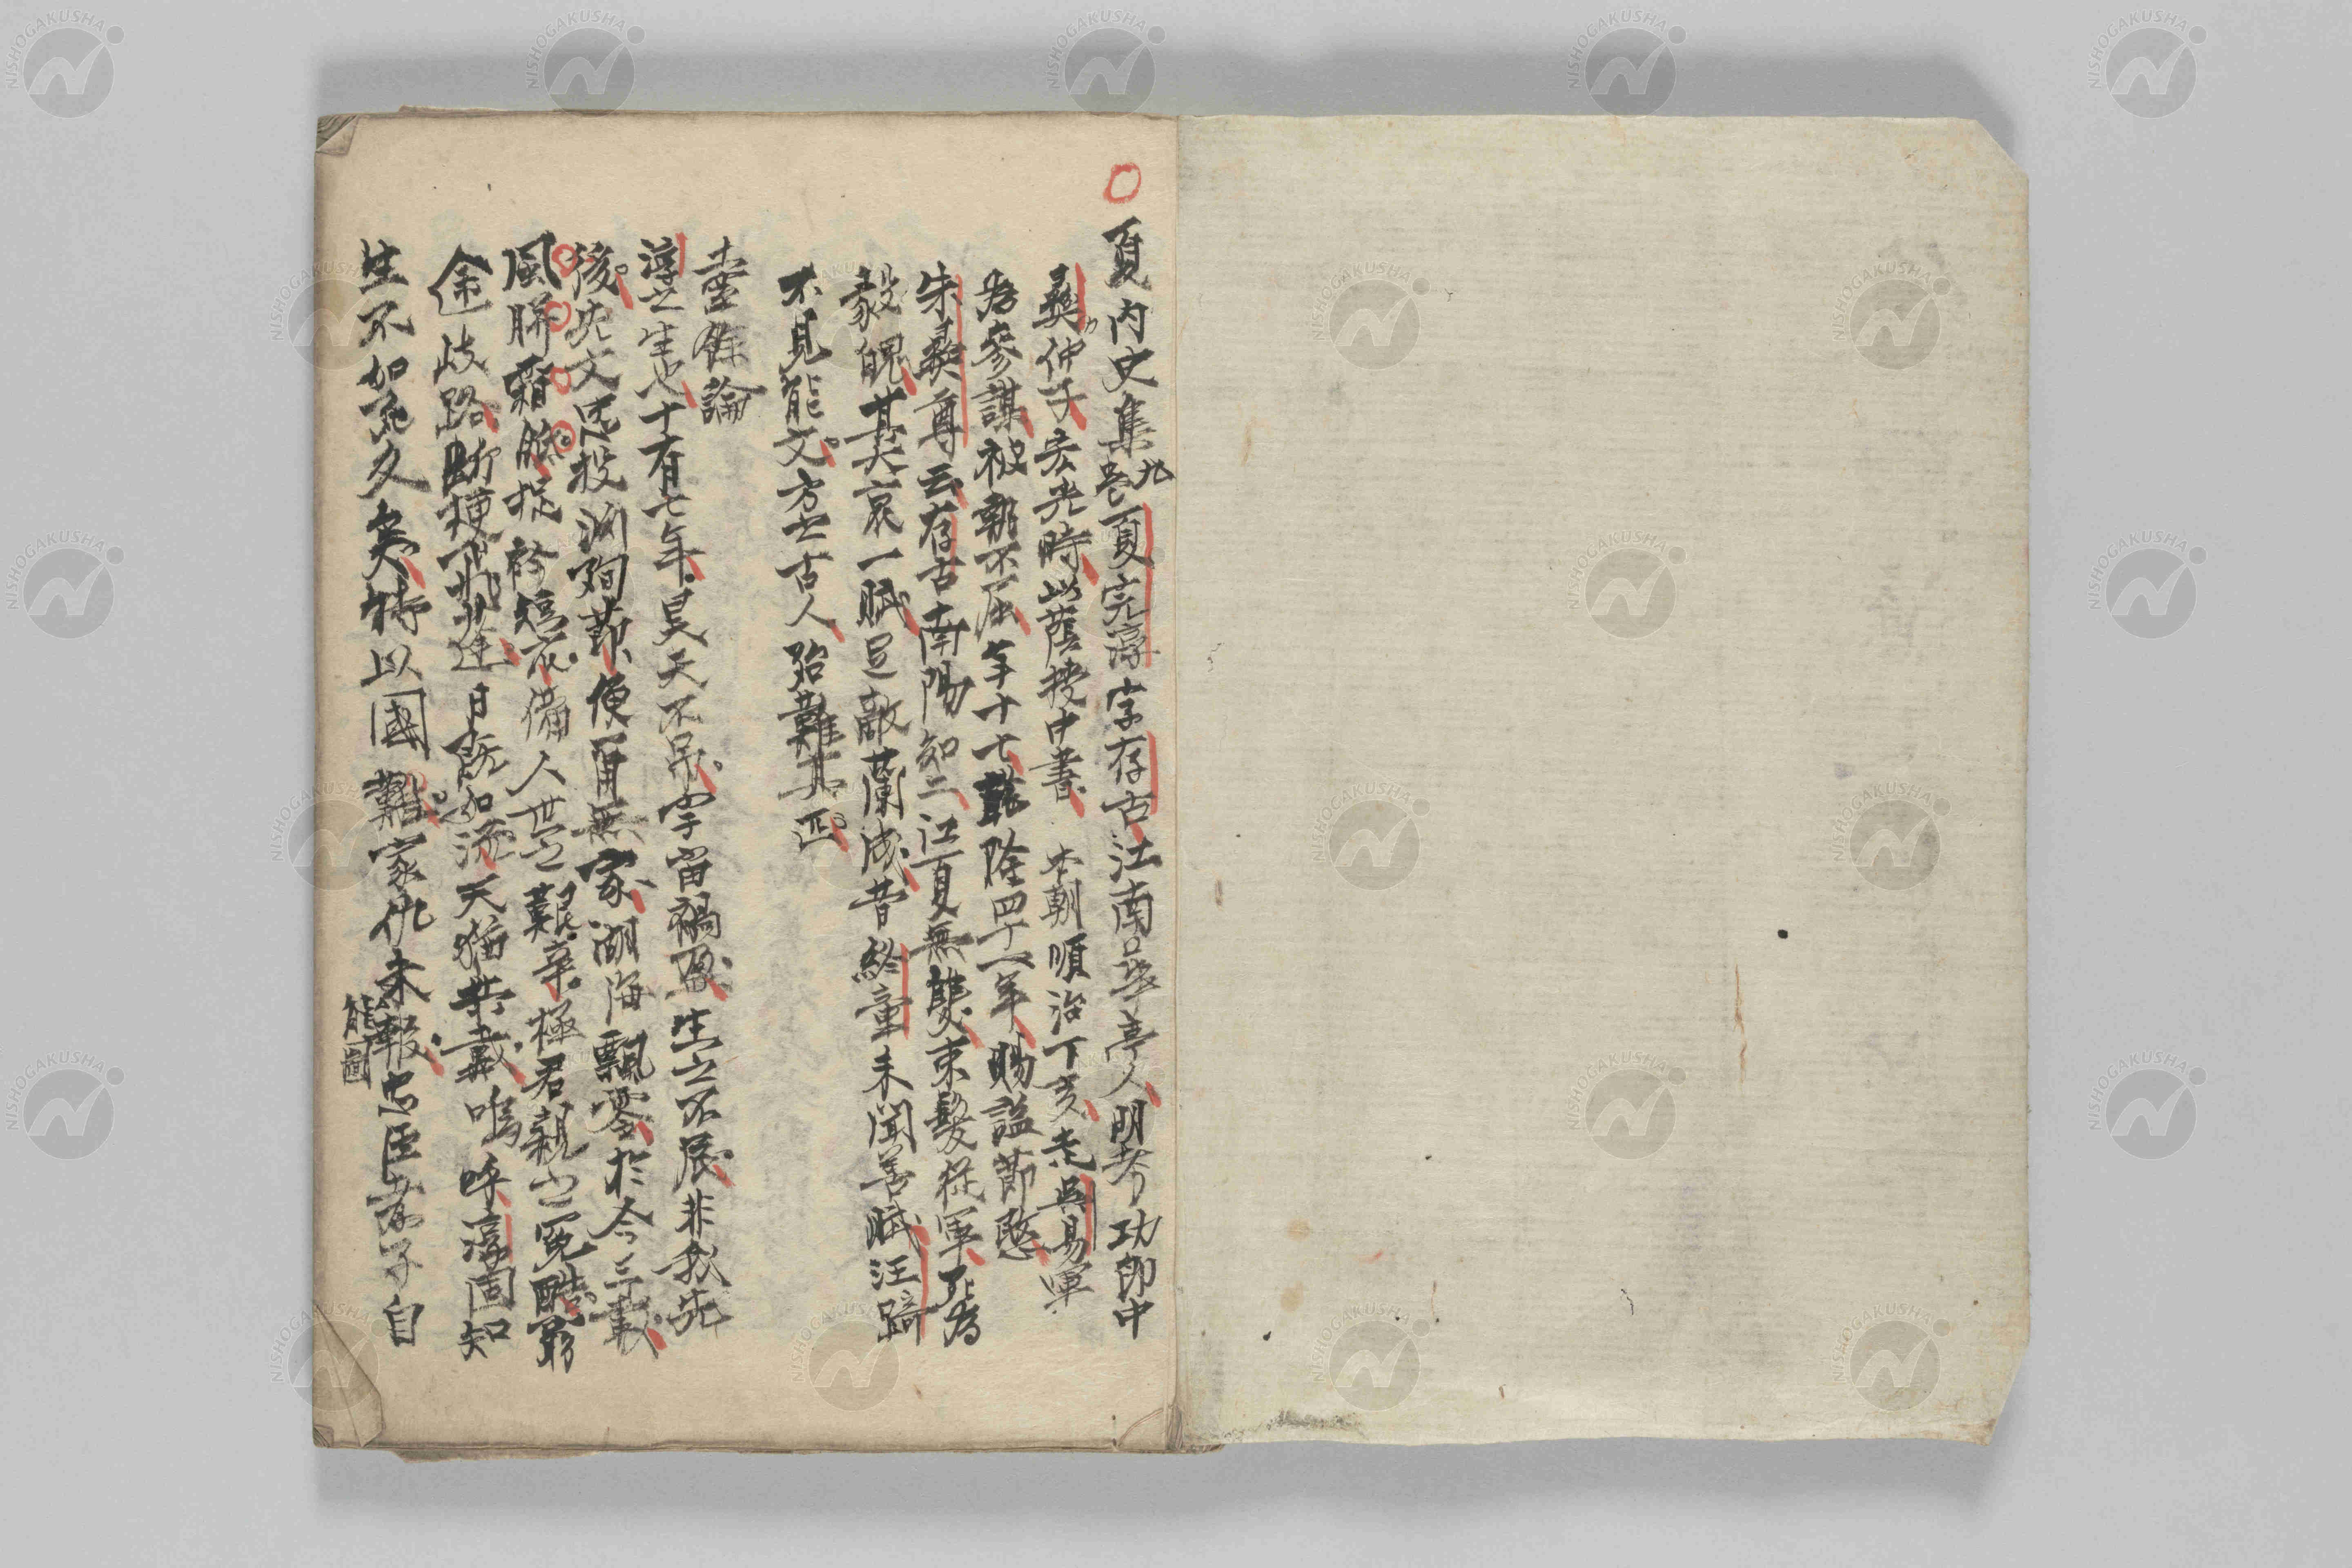 夏内史集九卷夏完淳字存古江南華亭人明考功郎中
彝仲子宏光時以蔭授中書本朝順治丁亥走吳易軍
為參謀被執不屈年十七乾隆四十一年賜諡節愍
朱彝尊云存古南陽知二江夏無雙束髮從軍死為
毅魄其大哀一賦足敵蘭成昔終童未聞善賦汪踦
不見能文方之古人殆難其匹
土室餘論
淳之生也十有七年昊天不弔宇宙禍盈生之不辰非我先
後先文忠投淵殉節便爾無家湖海飄零於今三載
風胼霜胝捉衿短衣備人世之艱辛極君親之冤酷窮
途歧路斷梗飛蓬日既如流天猶共戴嗚呼淳固知
生不如死久矣特以國難家仇未報忠臣孝子自
能圖
NISHOGAKUSHA